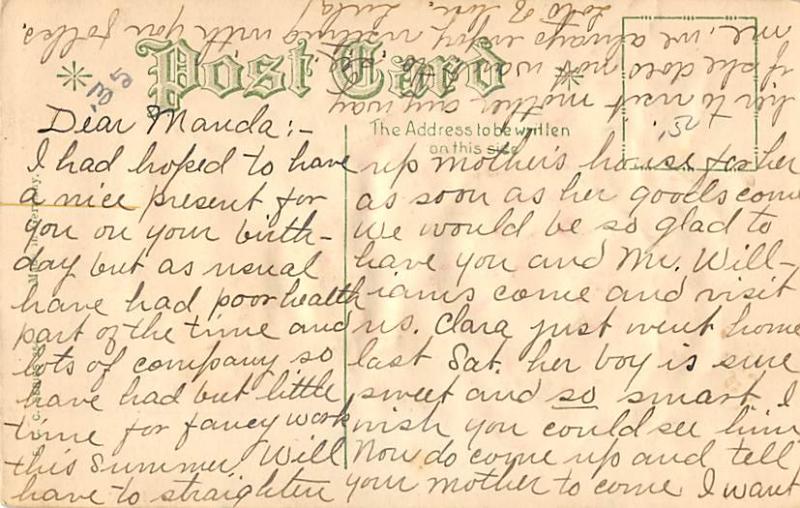 Post Card
The Address to be written
on this side
Dear Manda:-
I had hoped to have
a nice present for
you on your birth-
day but as usual
have had poor health
part of the time and
lots of company so
have had but little
time for fancy work
this Summer. Will
have to straighten
up mother's house for her
as soon as her goods come
we would be so glad to
have you and Mr. Will-
iams come and visit
us. Clara just went home
last Sat. her boy is sure
sweet and so smart I
wish you could see him
Now do come up and tell
your mother to come I want
her to visit mother any way
if she does not want to
me, we always enjoy visiting with you folks.
Lots of love, Lula